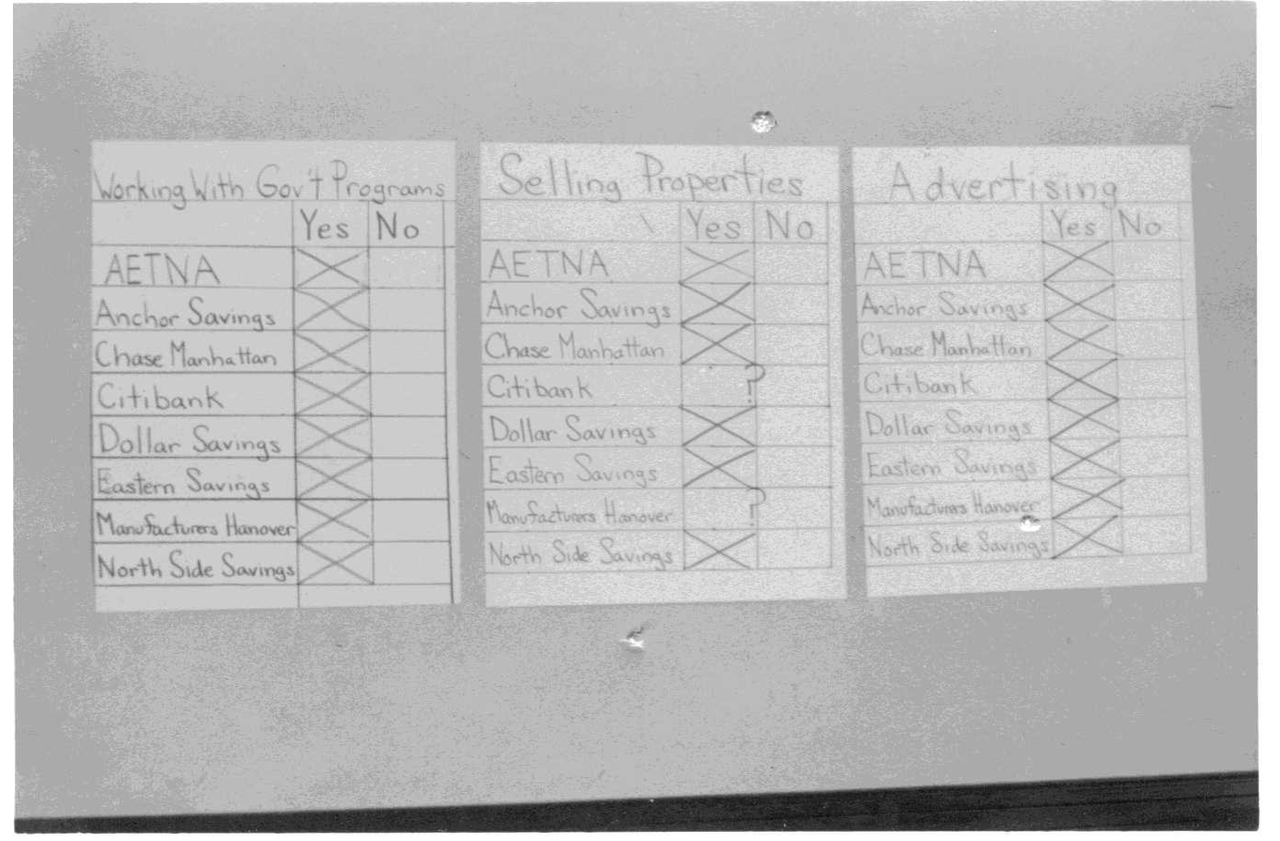 Working With Gov't Programs
Yes No
AETNA
Anchor Savings
Chase Manhattan
Citibank
Dollar Savings
Eastern Savings
Manufacturers Hanover
North Side Savings
Selling Properties
Yes No
AETNA
Anchor Savings
Chase Manhattan
Citibank ?
Dollar Savings
Eastern Savings
Manufacturers Hanover ?
North Side Savings
Advertising
Yes No
AETNA
Anchor Savings
Chase Manhattan
Citibank
Dollar Savings
Eastern Savings
Manufacturers Hanover
North Side Savings